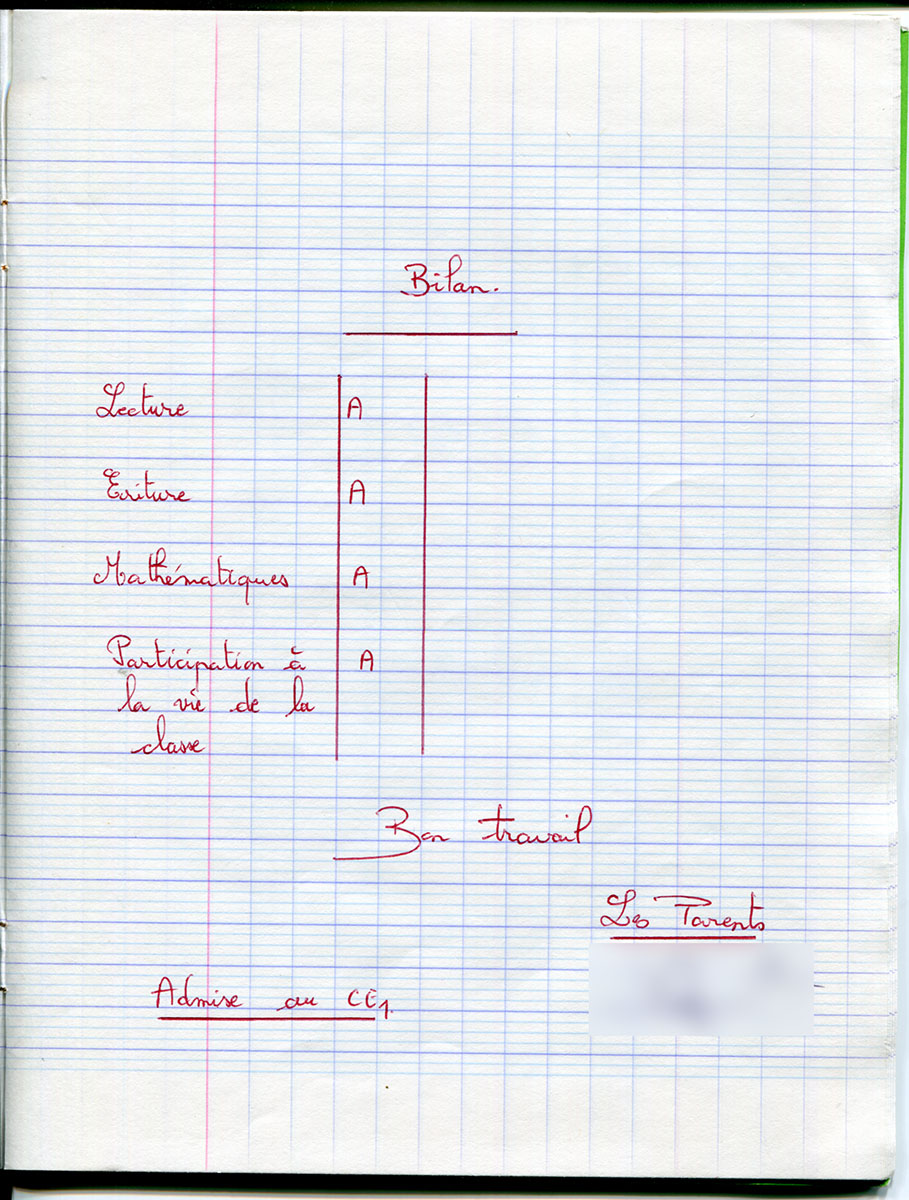 Bilan.
Lecture A
Ecriture A
Mathématiques A
Participation à A
la vie de la
classe
Bon travail
Les Parents
Admise au CE1.